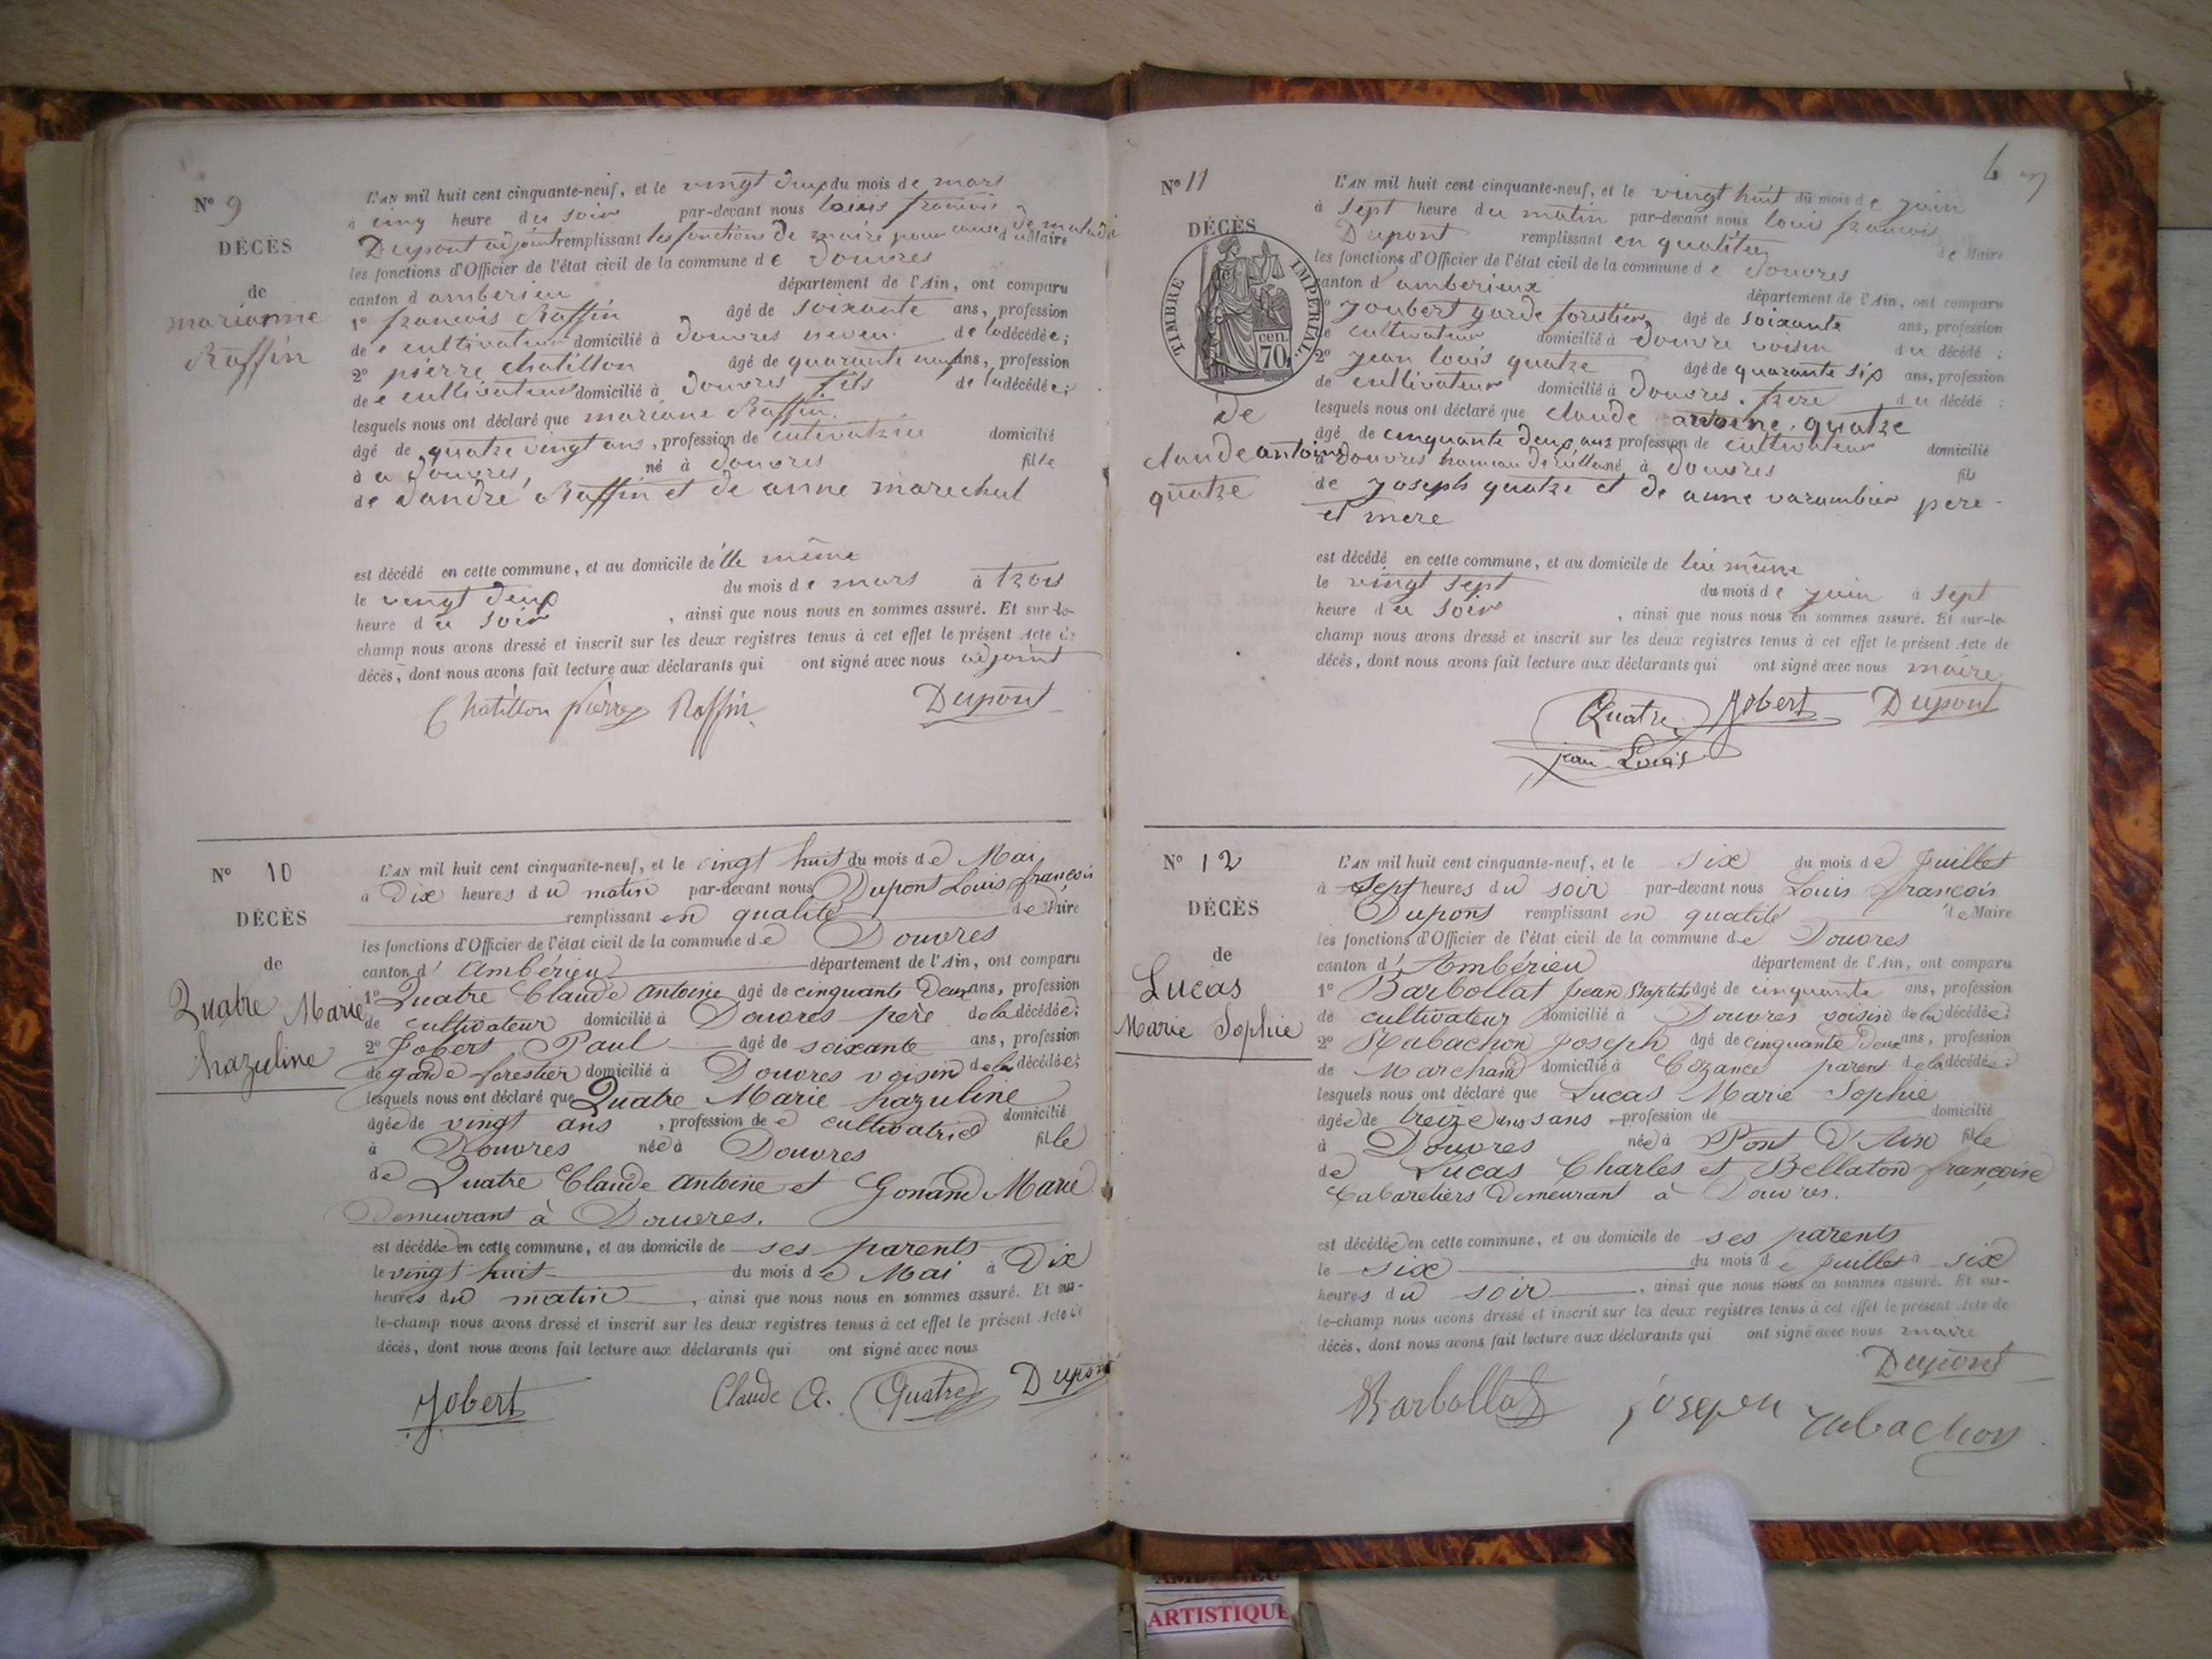 N° 9
DÉCÈS
de
marianne
Raffin
L'AN mil huit cent cinquante-neuf, et le vingt deux du mois de mars
à cinq heure du soir par-devant nous louis francois
Dupont adjoint remplissant les fonctions de maire pour cause de maladie du Maire
les fonctions d'Officier de l'état civil de la commune de douvres
canton d amberieu département de l'Ain, ont comparu
1° francois Raffin âgé de soixante ans, profession
de cultivateur domicilié à douvres neveu de la décédée;
2° pierre chatillon âgé de quarante neuf ans, profession
de cultivateur domicilié à douvres fils de la décédée;
lesquels nous ont déclaré que mariane Raffin
âgé de quatre vingt ans, profession de cultivatrice domicilié
à a douvres, né à douvres fille
de dandré Raffin et de anne marechal
est décédé en cette commune, et au domicile de elle même
le vingt deux du mois de mars à trois
heure du soir, ainsi que nous nous en sommes assuré. Et sur-le-
champ nous avons dressé et inscrit sur les deux registres tenus à cet effet le présent Acte de
décès, dont nous avons fait lecture aux déclarants qui ont signé avec nous adjoint
Chatillon pierre Raffin Dupont
N° 10
DÉCÈS
de
Quatre Marie
hazuline
L'AN mil huit cent cinquante-neuf, et le vingt huit du mois de Mai
à Dix heures du matin par-devant nous Dupont Louis françois
remplissant en qualité de Maire
les fonctions d'Officier de l'état civil de la commune de Douvres
canton d' Ambérieu département de l'Ain, ont comparu
1° Quatre Claude Antoine âgé de cinquante Deux ans, profession
de cultivateur domicilié à Douvres pere de la décédée;
2° Jobert Paul âgé de soixante ans, profession
de garde forestier domicilié à Douvres voisin de la décédée;
lesquels nous ont déclaré que Quatre Marie hazuline
âgée de vingt ans, profession de cultivatrice domicilié
à Douvres née à Douvres fille
de Quatre Claude Antoine et Gonand Marie
Demeurant à Douvres.
est décédée en cette commune, et au domicile de ses parents
le vingt huit du mois de Mai à Dix
heures du matin, ainsi que nous nous en sommes assuré. Et sur-
le-champ nous avons dressé et inscrit sur les deux registres tenus à cet effet le présent Acte de
décès, dont nous avons fait lecture aux déclarants qui ont signé avec nous
Jobert Claude A. Quatre Dupont
6
N° 11
DÉCÈS
TIMBRE IMPÉRIAL
cen.
70
de
claude antoine
quatre
L'AN mil huit cent cinquante-neuf, et le vingt huit du mois de juin
à sept heure du matin par-devant nous louis francois
Dupont remplissant en qualitée de Maire
les fonctions d'Officier de l'état civil de la commune de douvres
canton d'amberieux département de l'Ain, ont comparu
1° Joubert garde forestier âgé de soixante ans, profession
de cultivateur domicilié à douvre voisin du décédé;
2° jean louis quatre âgé de quarante six ans, profession
de cultivateur domicilié à douvres. frere du décédé;
lesquels nous ont déclaré que claude antoine quatre
âgé de cinquante deux ans profession de cultivateur domicilié
à douvres hameau de né à douvres fils
de joseph quatre et de anne varambier pere
et mere
est décédé en cette commune, et au domicile de lui même
le vingt sept du mois de juin à sept
heure du soir, ainsi que nous nous en sommes assuré. Et sur-le-
champ nous avons dressé et inscrit sur les deux registres tenus à cet effet le présent Acte de
décès, dont nous avons fait lecture aux déclarants qui ont signé avec nous maire
Quatre Jobert Dupont
jean Louis
N° 12
DÉCÈS
de
Lucas
Marie Sophie
L'AN mil huit cent cinquante-neuf, et le six du mois de Juillet
à Sept heures du soir par-devant nous Louis françois
Dupont remplissant en qualité de Maire
les fonctions d'Officier de l'état civil de la commune de Douvres
canton d' Ambérieu département de l'Ain, ont comparu
1° Barbollat Jean Baptiste âgé de cinquante ans, profession
de cultivateur domicilié à Douvres voisin de la décédée;
2° Rabachon Joseph âgé de cinquante deux ans, profession
de Marchand domicilié à Cozance parent de la décédée;
lesquels nous ont déclaré que Lucas Marie Sophie
âgée de treize ans ans profession de domicilié
à Douvres née à Pont D'Ain fille
de Lucas Charles et Bellaton françoise
Cabaretiers demeurant à Douvres.
est décédée en cette commune, et au domicile de ses parents
le six du mois de Juillet à six
heures du soir, ainsi que nous nous en sommes assuré. Et sur-
le-champ nous avons dressé et inscrit sur les deux registres tenus à cet effet le présent Acte de
décès, dont nous avons fait lecture aux déclarants qui ont signé avec nous maire
Dupont
Barbollat joseph rabachon
ARTISTIQUE